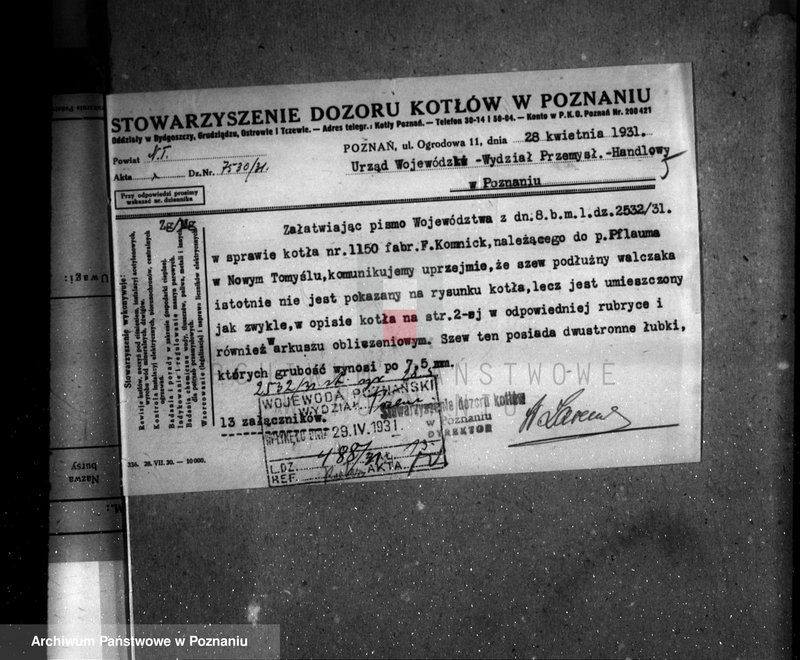 STOWARZYSZENIE DOZORU KOTŁÓW W POZNANIU
Oddziały w Bydgoszczy, Grudziądzu, Ostrowie i Tczewie. — Adres telegr.: Kotły Poznań. — Telefon 30-14 i 50-04. — Konto w P. K. O. Poznań Nr. 200 421
Powiat N.T.
POZNAŃ, ul. Ogrodowa 11, dnia 28 kwietnia 1931.
Akta Dz. Nr. 7530/31.
Urząd Wojewódzki -Wydział Przemysł.-Handlowy
w Poznaniu
Przy odpowiedzi prosimy
wskazać nr. dziennika
Zg/Mg
Załatwiając pismo Województwa z dn.8.b.m.l.dz.2532/31.
w sprawie kotła nr.1150 fabr.F.Komnick,należącego do p.Pflauma
w Nowym Tomyślu,komunikujemy uprzejmie,że szew podłużny walczaka
istotnie nie jest pokazany na rysunku kotła,lecz jest umieszczony
jak zwykle,w opisie kotła na str.2-ej w odpowiedniej rubryce i
również w arkuszu obliczeniowym. Szew ten posiada dwustronne łubki,
których grubość wynosi po 7,5 mm.
13 załączników.
Stowarzyszenie wykonywuje:
Rewizje kotłów, naczyń pod ciśnieniem, instalacyj acetylenowych,
wyrobu wód mineralnych, dźwigów.
Kontrolę instalacyj elektrycznych, piorunochronów, centralnych
ogrzewań.
Badania i porady w zakresie gospodarki cieplnej.
Indykowanie i regulowanie maszyn parowych.
Badania chemiczne wody, smarów, paliwa, metali i innych
dla potrzeb przemysłowych.
Wzorcowanie (legalizacja) i naprawa liczników elektrycznych
2532/31
WOJEWODA POZNAŃSKI
WYDZIAŁ
WPŁYNĘŁO DNIA 29.IV.1931.
L.DZ.
REF. AKTA
Stowarzyszenie dozoru kotłów
w Poznaniu
DYREKTOR
336. 28. VII. 30. — 10 000.
PAŃSTWOWE
Uwagi:
Nazwa
bursy
M.:
Archiwum Państwowe w Poznaniu